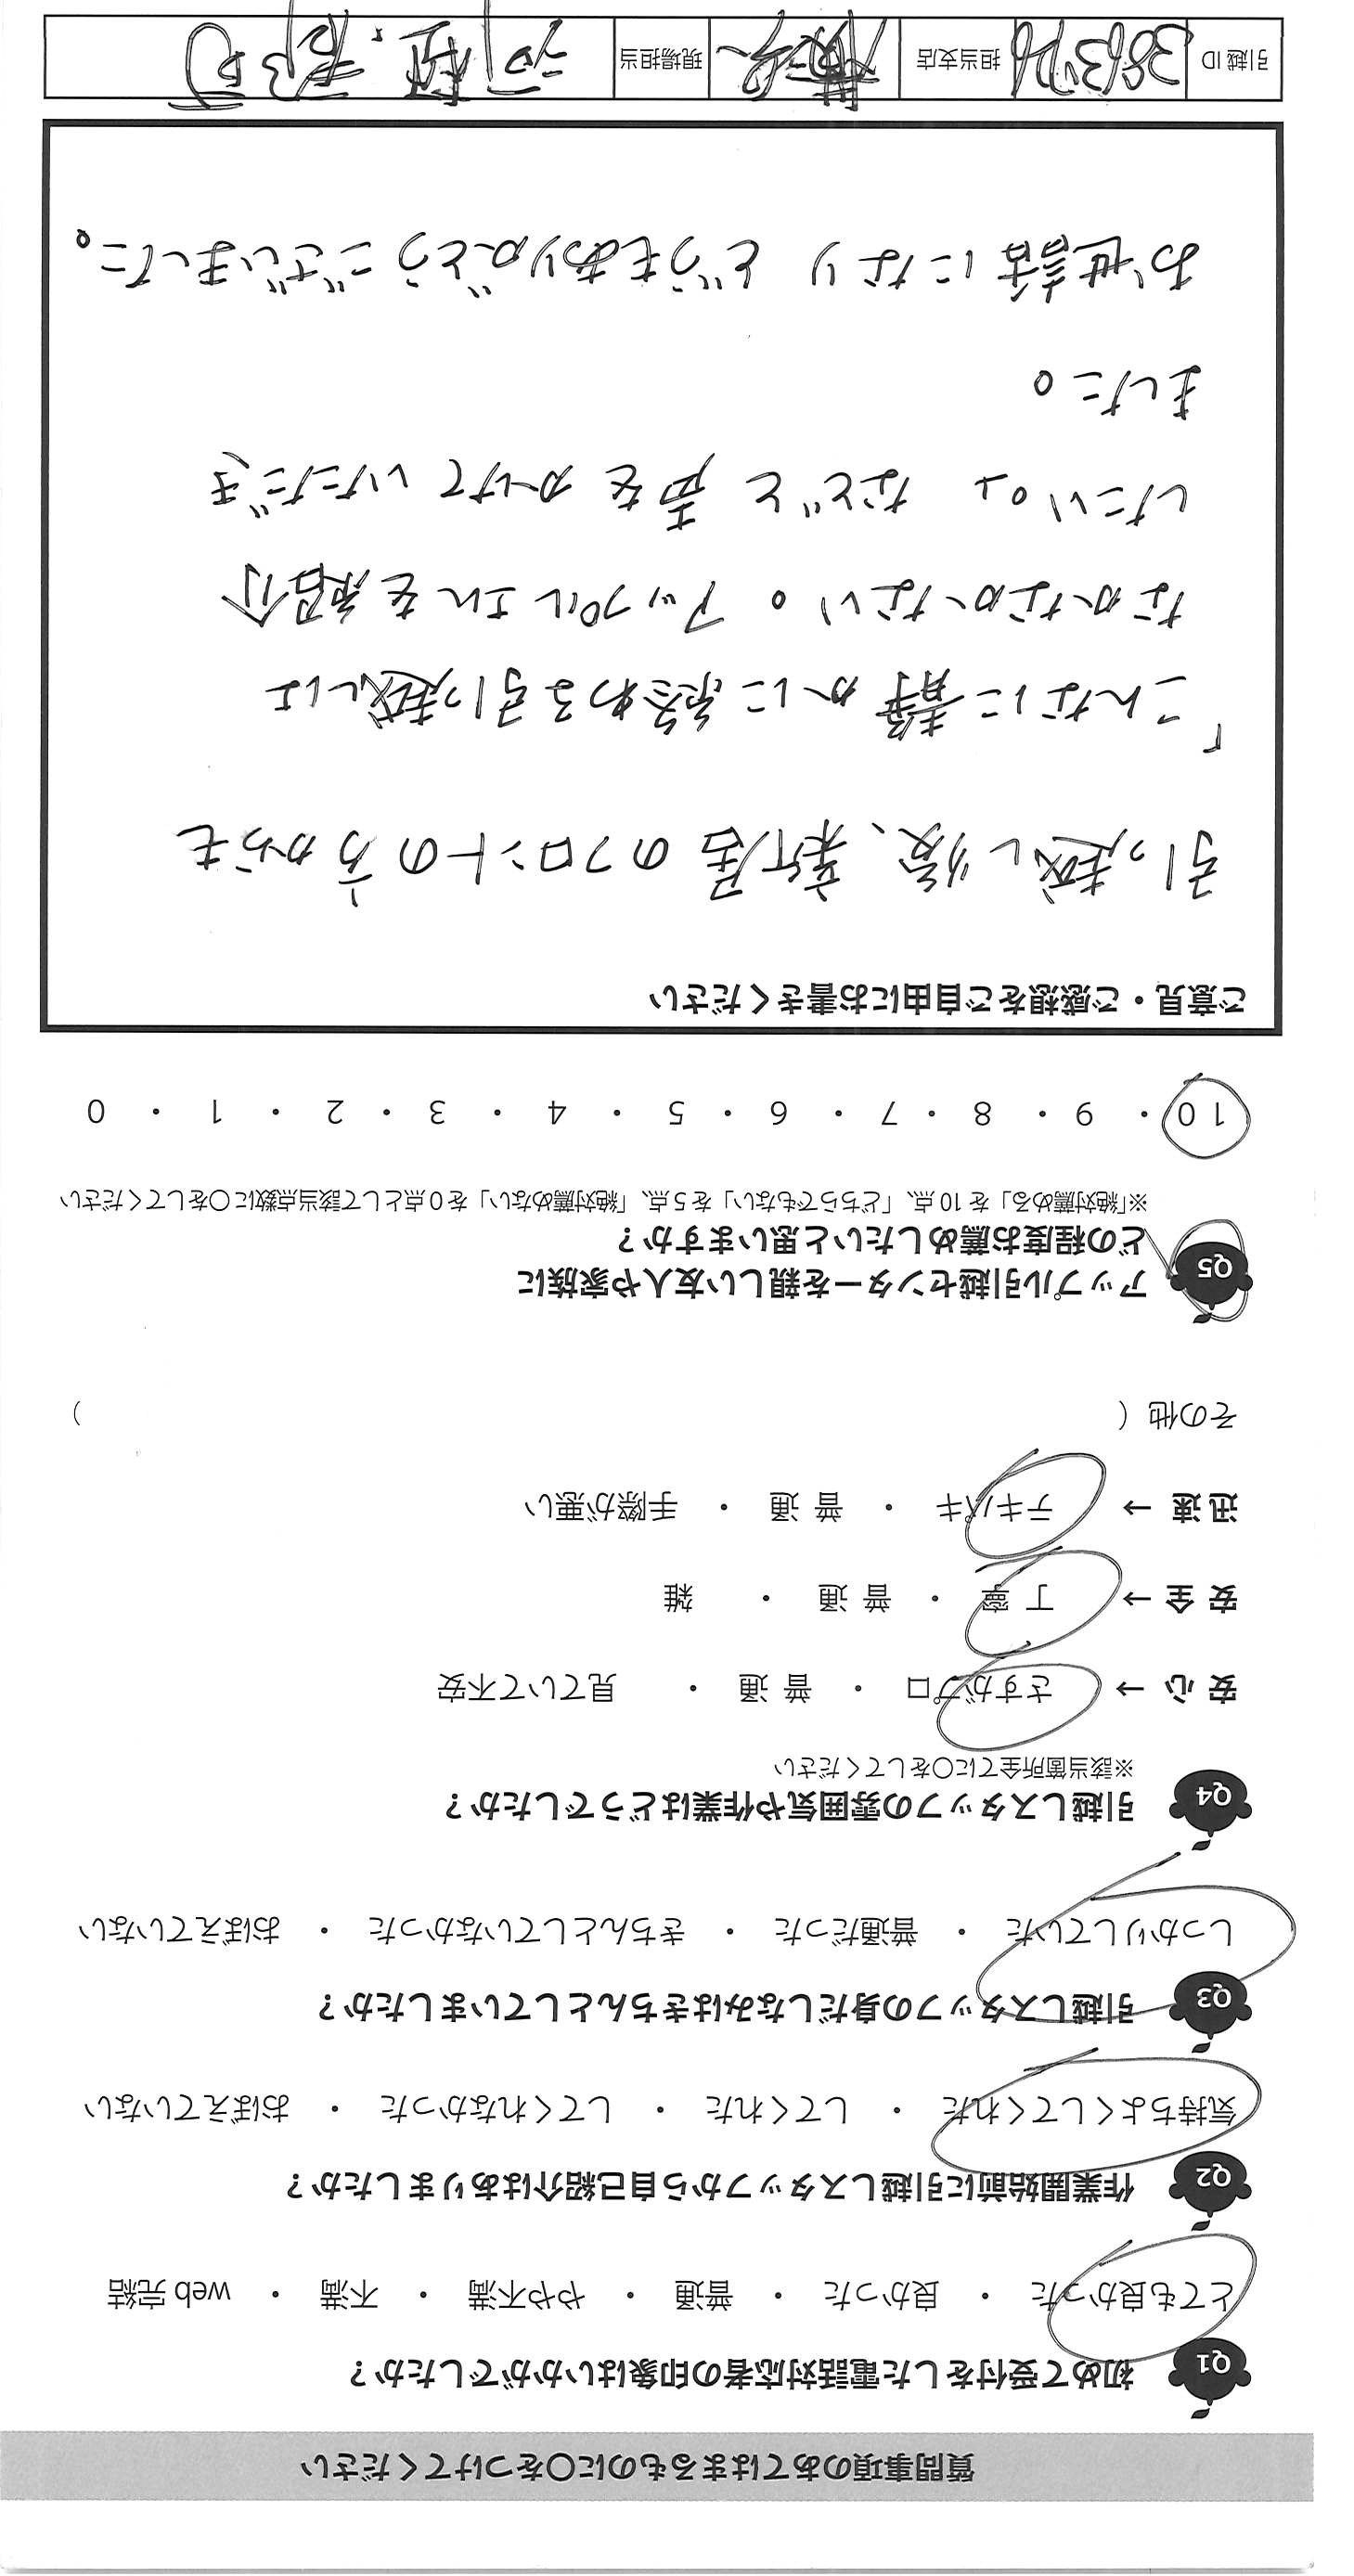 質問事項のあてはまるものに〇をつけてください
Q1 初めて受付をした電話対応者の印象はいかがでしたか？
とても良かった ・ 良かった ・ 普通 ・ やや不満 ・ 不満 ・ web 完結
Q2 作業開始前に引越しスタッフから自己紹介はありましたか？
気持ちよくしてくれた ・ してくれた ・ してくれなかった ・ おぼえていない
Q3 引越しスタッフの身だしなみはきちんとしていましたか？
しっかりしていた ・ 普通だった ・ きちんとしていなかった ・ おぼえていない
Q4 引越しスタッフの雰囲気や作業はどうでしたか？
※該当箇所全てに〇をしてください
安心 → さすがプロ ・ 普通 ・ 見ていて不安
安全 → 丁寧 ・ 普通 ・ 雑
迅速 → テキパキ ・ 普通 ・ 手際が悪い
その他（ ）
Q5 アップル引越センターを親しい友人や家族に
どの程度お薦めしたいと思いますか？
※「絶対薦める」を 10 点、「どちらでもない」を 5 点、「絶対薦めない」を 0 点として該当点数に〇をしてください
10 ・ 9 ・ 8 ・ 7 ・ 6 ・ 5 ・ 4 ・ 3 ・ 2 ・ 1 ・ 0
ご意見・ご感想をご自由にお書きください
引っ越し後、新居のフロントの方からも
「こんなに静かに終わる引っ越しは
なかなかない。アップルさんを紹介
したい。」などと声をかけていただき
ました。
お世話になりどうもありがとうございました。
引越 ID 担当支店 横浜 現場担当